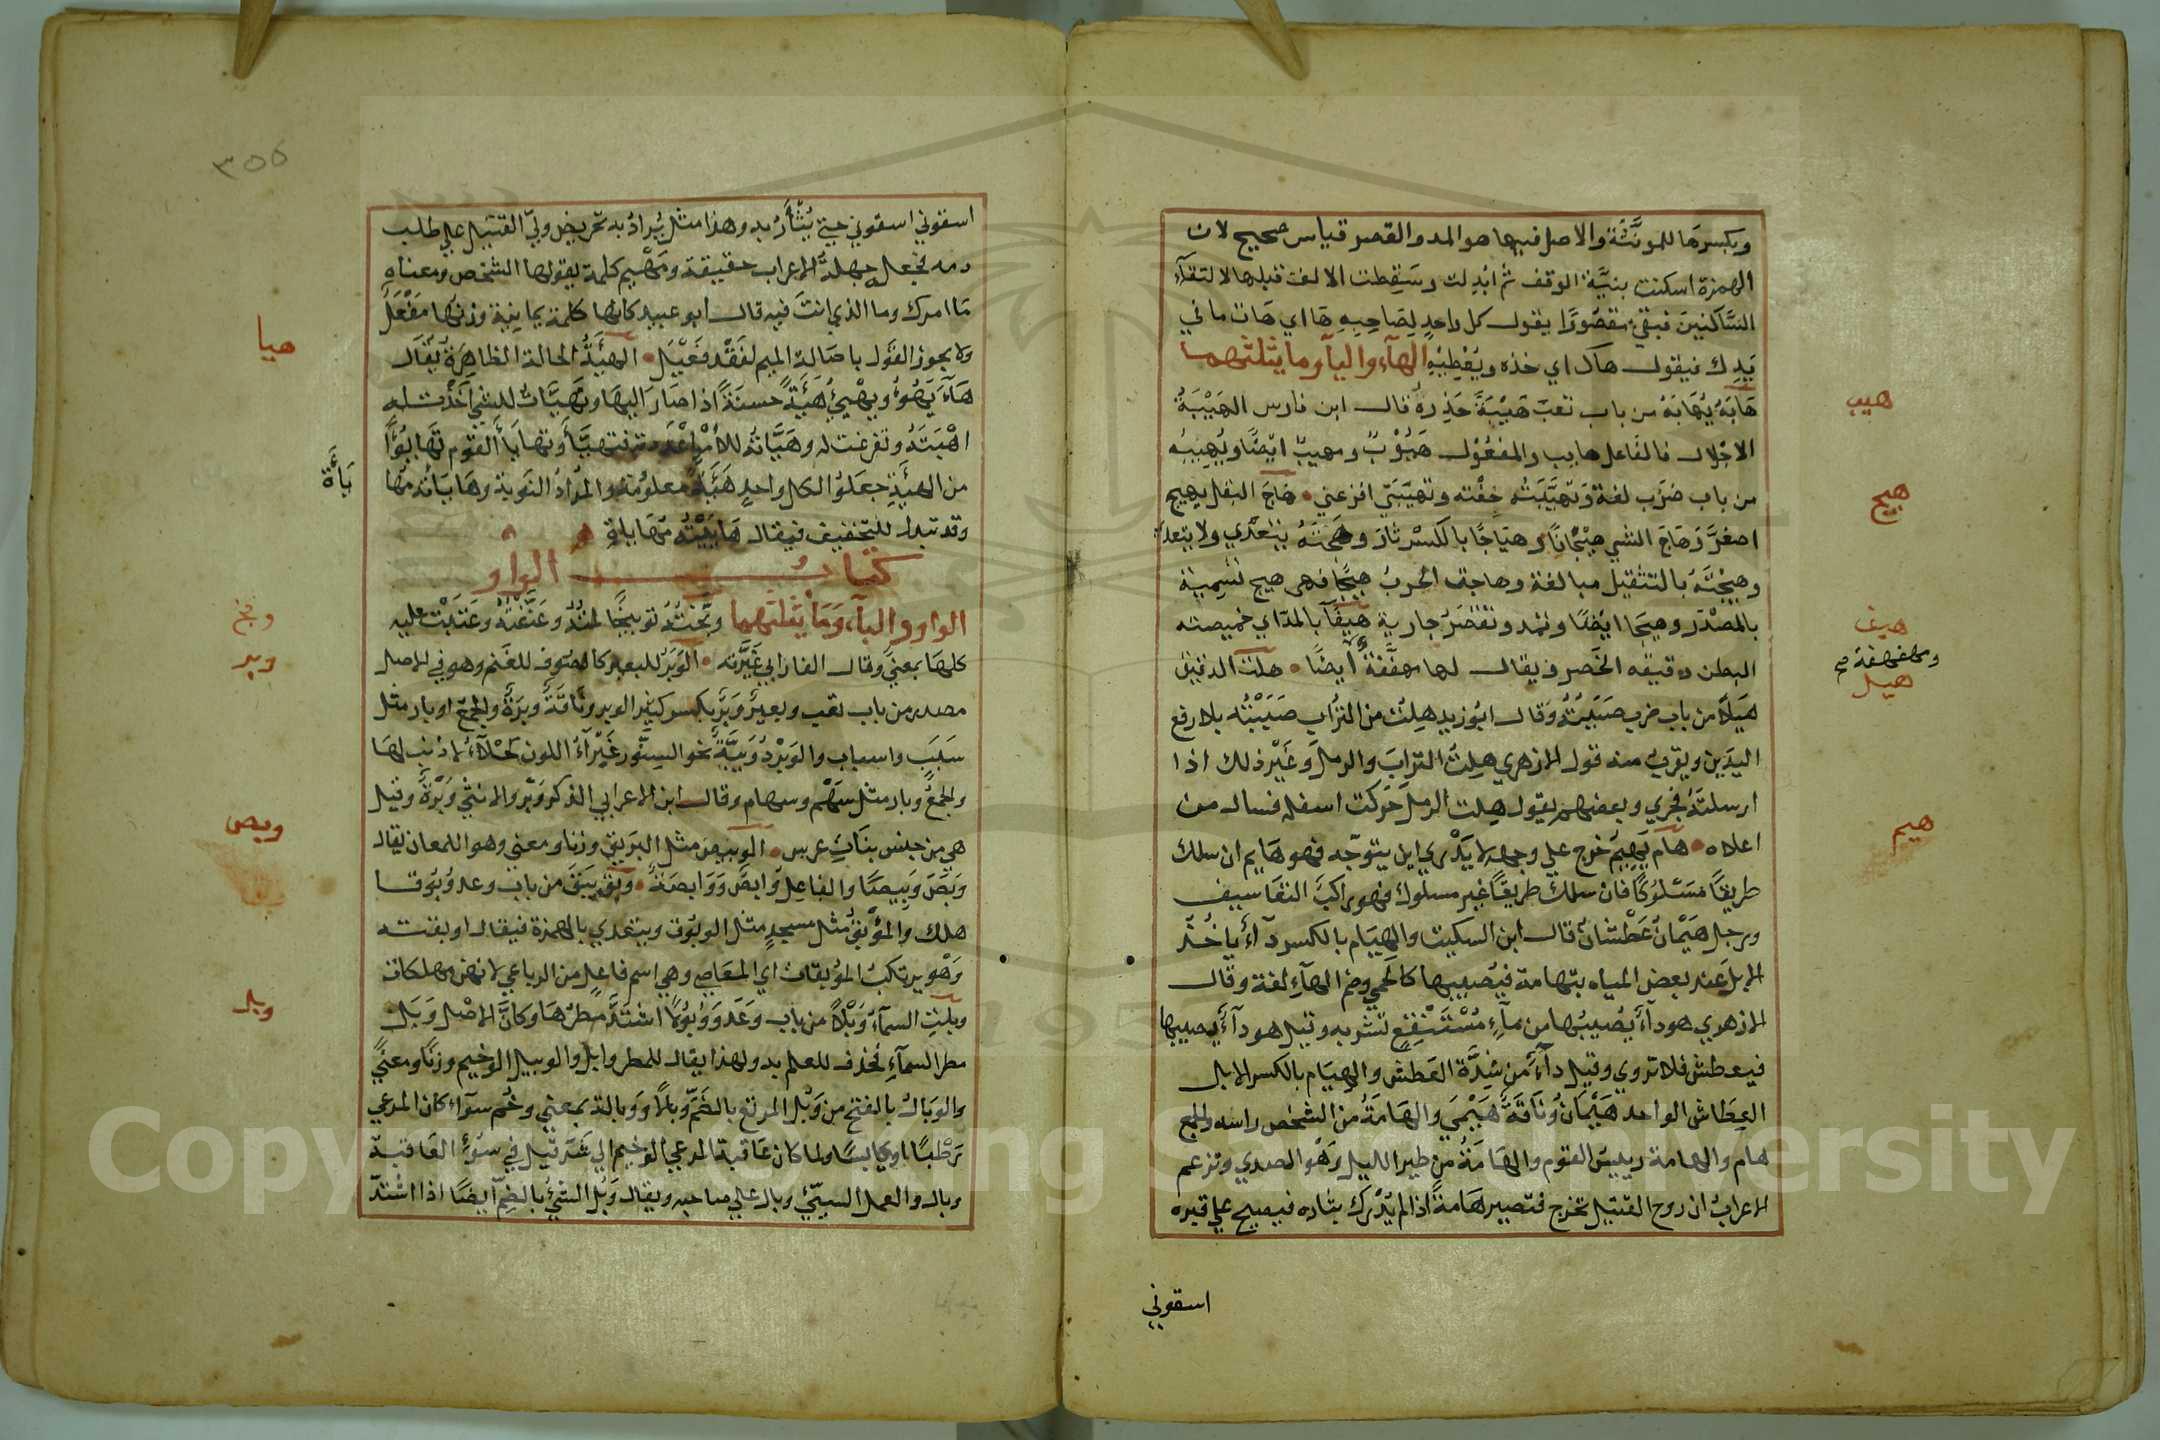 وبكسرها للمونثة والاصل فيها هو المد والقصر قياس صحيح لان
الهمزة اسكنت بنية الوقف ثم ابدلت وسقطت الالف قبلها لالتقآء
الساكنين فبقي مقصورا يقول كل واحد لصاحبه ها اي هات ما في
يدك فيقول هاك اي خذه ويعطيه الهآء واليآ وما يثلثهما
هابه يهابه من باب تعب هيبة حذره قال ابن فارس الهيبة
الاجلال فالفاعل هايب والمفعول هيوب ومهيب ايضا ويهيبه
من باب ضرب لغة وتهيبته خفته وتهيبني افزعني هاج البقل يهيج
اصفر وهاج الشي هيجانا وهياجا بالكسر ثار وهجته يتعدي ولا يتعدا
وهيجته بالتثقيل مبالغة وهاجت الحرب هيجا فهي هيج تسمية
بالمصدر وهيجا ايضا وتمد وتقصر جارية هيفآ بالمد اي خميصته
البطن دقيقه الخصر ويقال لها مهففة ايضا هلت الدقيق
هيلا من باب ضرب صببته وقال ابو زيد هلت من التراب صببته بلا رفع
اليدين ويقرب منه قول الازهري هلت التراب والرمل وغير ذلك اذا
ارسلته فجري وبعضهم يقول هلت الرمل حركت اسفله فسال من
اعلاه هام يهيم خرج علي وجهه لا يدري اين يتوجه فهو هايم ان سلك
طريقا مسلوكا فان سلك طريقا غير مسلوك فهو راكب التعاسيف
ورجل هيمان عطشان قال ابن السكيت والهيام بالكسر دآء ياخذ
الابل عند بعض المياه بتهامة فيصيبها كالحمي وضم الهآء لغة وقال
الازهري هو دآء يصيبها من مآء مستنقع تشربه وقيل هو دآء يصيبها
فيعطش فلا تروي وقيل دآء من شدة العطش والهيام بالكسر الابل
العطاش الواحد هيمان وناقة هيمي والهامة من الشخص راسه والجمع
هام والهامة رييس القوم والهامة من طير الليل وهو الصدي وتزعم
الاعراب ان روح القتيل تخرج فتصير هامة اذا لم يدرك بثاره فيصيح علي قبره
اسقوني
هيب
هيج
هيف
ومهفهفة صح
هيل
هيم
٣٥٥
اسقوني اسقوني حتي يثأر به وهذا مثل يراد به تحريض ولي القتيل علي طلب
دمه فجعله جهلة الاعراب حقيقة ومهيم كلمة يقولها الشخص ومعناه
ما امرك وما الذي انت فيه قال ابو عبيد كانها كلمة يمانية وزنها مفعل
ولا يجوز القول باصالة الميم لفقد فعيل الهيئة الحالة الظاهرة يقال
هآء يهوء ويهيئ هيئة حسنة اذا صار اليها وتهيات للشي اخذت له
اهبته وتفرغت له وهياته للامر اعددته فتهيأ وتهايأ القوم تهايؤا
من الهيئة جعلوا لكل واحد هيئة معلومة والمراد النوبة وهاياته مهايأة
وقد تبدل للتخفيف فيقال هاييته مهاياة
كتاب الواو
الواو والبآء وما يثلثهما وبخته توبيخا لمته وعنفته وعتبت عليه
كلها بمعني وقال الفارابي عيرته الوبر للبعير كالصوف للغنم وهو في الاصل
مصدر من باب تعب وبعير وبر بكسر كثير الوبر وناقة وبرة والجمع اوبار مثل
سبب واسباب والوبر دويبة نحو السنور غبرآء اللون كحلآء لا ذنب لها
والجمع وبار مثل سهم وسهام وقال ابن الاعرابي الذكر وبر والانثي وبرة وقيل
هي من جنس بنات عرس الوبيص مثل البريق وزنا ومعني وهو اللمعان يقال
وبص وبيصا والفاعل وابص ووابصة وبق يبق من باب وعد وبوقا
هلك والموبق مثل مسجد مثل الوبوق ويتعدي بالهمزة فيقال اوبقته
وهو يرتكب الموبقات اي المعاصي وهي اسم فاعل من الرباعي لانهن مهلكات
وبلت السمآء وبلا من باب وعد ووبولا اشتد مطرها وكان الاصل وبل
مطر السمآء فحذف للعلم به ولهذا يقال للمطر وابل والوبيل الوخيم وزنا ومعني
والوبال بالفتح من وبل المرتع بالضم وبالا ووبالة بمعني وخم سوآء كان المرعي
رطبا او يابسا ولما كان عاقبة المرعي الوخيم الي شر قيل في سوء العاقبة
وبال والعمل السيئ وبال علي صاحبه ويقال وبل الشئ بالضم ايضا اذا اشتد
هيا
يأة
وبخ
وبر
وبص
وبق
وبل
Copyright © King Saud University